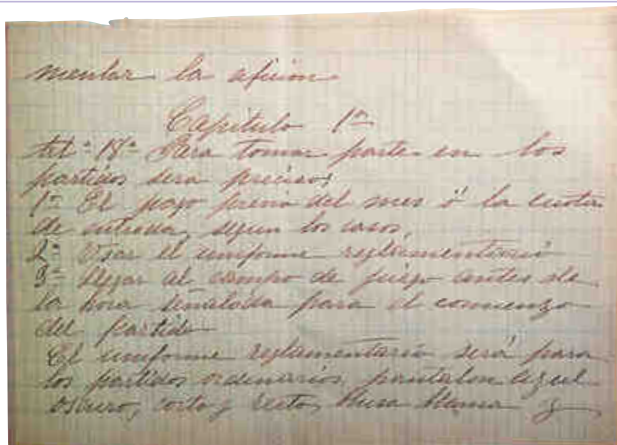 mentar la aficion.
Capitulo 1º
Art.º 18º Para tomar parte en los
partidos sera preciso;
1º El pago previo del mes ó la cuota
de entrada, segun los casos,
2º Usar el uniforme reglamentario
3º Llegar al campo de juego antes de
la hora señalada para el comienzo
del partido
El uniforme reglamentario será para
los partidos ordinarios, pantalon azul
oscuro, corto y recto, blusa blanca y